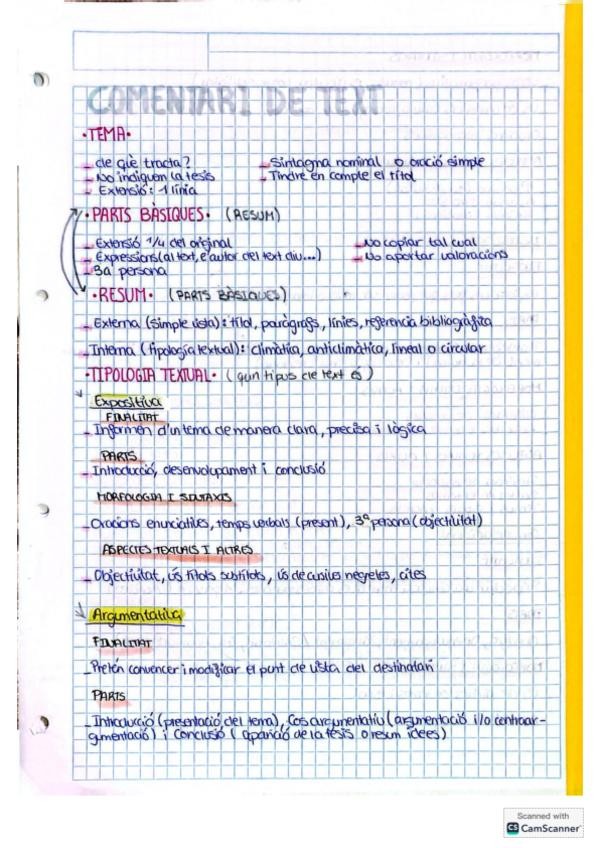 COMENTARI DE TEXT
·TEMA·
- de què tracta?
- No indiquem la tesis
- Extensió: 1 línia
- Sintagma nominal o oració simple
- Tindre en compte el títol
·PARTS BÀSIQUES· (RESUM)
- Extensió 1/4 del original
- Expressions (al text, l'autor del text diu...)
- 3a persona
- No copiar tal cual
- No aportar valoracions
·RESUM· (PARTS BÀSIQUES)
- Externa (simple vista): títol, paràgrafs, línies, referencia bibliogràfica
- Interna (tipología textual): climàtica, anticlimàtica, lineal o circular
·TIPOLOGIA TEXTUAL· (quin tipus de text és)
Expositiva
FINALITAT
- Informen d'un tema de manera clara, precisa i lògica
PARTS
- Introducció, desenvolupament i conclusió
MORFOLOGIA I SINTAXIS
- Oracions enunciatives, temps verbals (present), 3ª persona (objectivitat)
ASPECTES TEXTUALS I ALTRES
- Objectivitat, ús títols subtítols, ús de cursives negretes, cites
Argumentativa
FINALITAT
- Pretén convencer i modificar el punt de vista del destinatari
PARTS
- Introducció (presentació del tema), Cos argumentatiu (argumentació i/o contraar-
gumentació) i Conclusió (aparició de la tesis o resum idees)
Scanned with
CS CamScanner